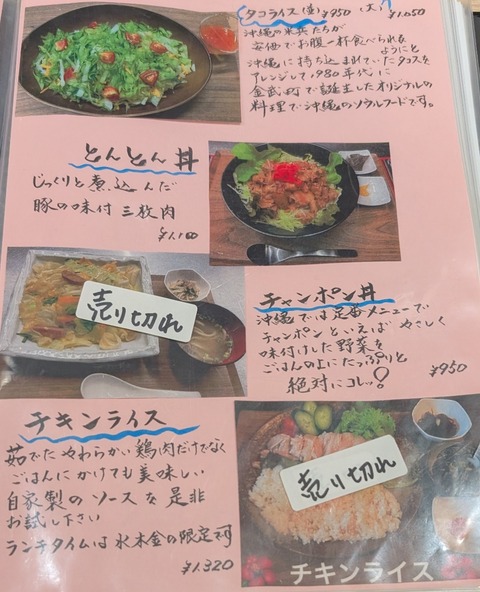 タコライス (並) ¥950 (大) ¥1,050
沖縄の米兵たちが
安価でお腹一杯食べられる
ようにと
沖縄に持ち込まれていたタコスを
アレンジして1980年代に
金武町で誕生したオリジナルの
料理で沖縄のソウルフードです。
とんとん丼
じっくりと煮込んだ
豚の味付三枚肉
¥1,100
売り切れ
チャンポン丼
沖縄では定番メニューで
チャンポンといえばやさしく
味付けした野菜を
ごはんの上にたっぷりと
絶対にコレッ!
¥950
チキンライス
茹でたやわらかい鶏肉だけでなく
ごはんにかけても美味しい
自家製のソースを是非
お試し下さい
ランチタイムは水木金の限定です
¥1,320
売り切れ
チキンライス